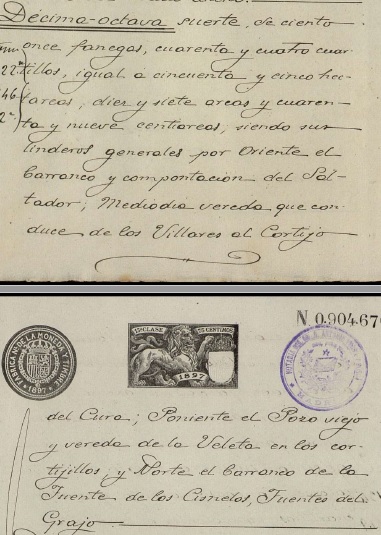 Décima-octava suerte, de ciento
once fanegas, cuarenta y cuatro cuar-
tillos, igual á cincuenta y cinco hec-
tareas, diez y siete areas y cuaren-
ta y nueve centiareas, siendo sus
linderos generales por Oriente el
barranco y compontacion del Sal-
tador; Mediodia vereda que con-
duce de los Villares al Cortijo
FABRICA NACIONAL DE LA MONEDA Y TIMBRE
1897
12ª CLASE 75 CENTIMOS
1897
N 0.904.67
del Cura; Poniente el Pozo viejo
y vereda de la Veleta en los cor-
tijillos, y Norte el barranco de la
Fuente de los Cisnetos, Fuentes del
Grajo